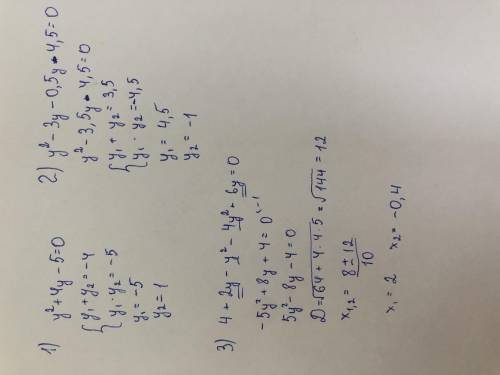 1) y² + 4y - 5 = 0
{ y₁ + y₂ = -4
y₁ · y₂ = -5
y₁ = -5
y₂ = 1
2) y² - 3y - 0,5y - 4,5 = 0
y² - 3,5y - 4,5 = 0
{ y₁ + y₂ = 3,5
y₁ · y₂ = -4,5
y₁ = 4,5
y₂ = -1
3) 4 + 2y - y² - 4y² + 6y = 0
-5y² + 8y + 4 = 0 \ -1
5y² - 8y - 4 = 0
D = √64 + 4 · 4 · 5 = √144 = 12
x₁,₂ = 8 ± 12 / 10
x₁ = 2 x₂ = -0,4